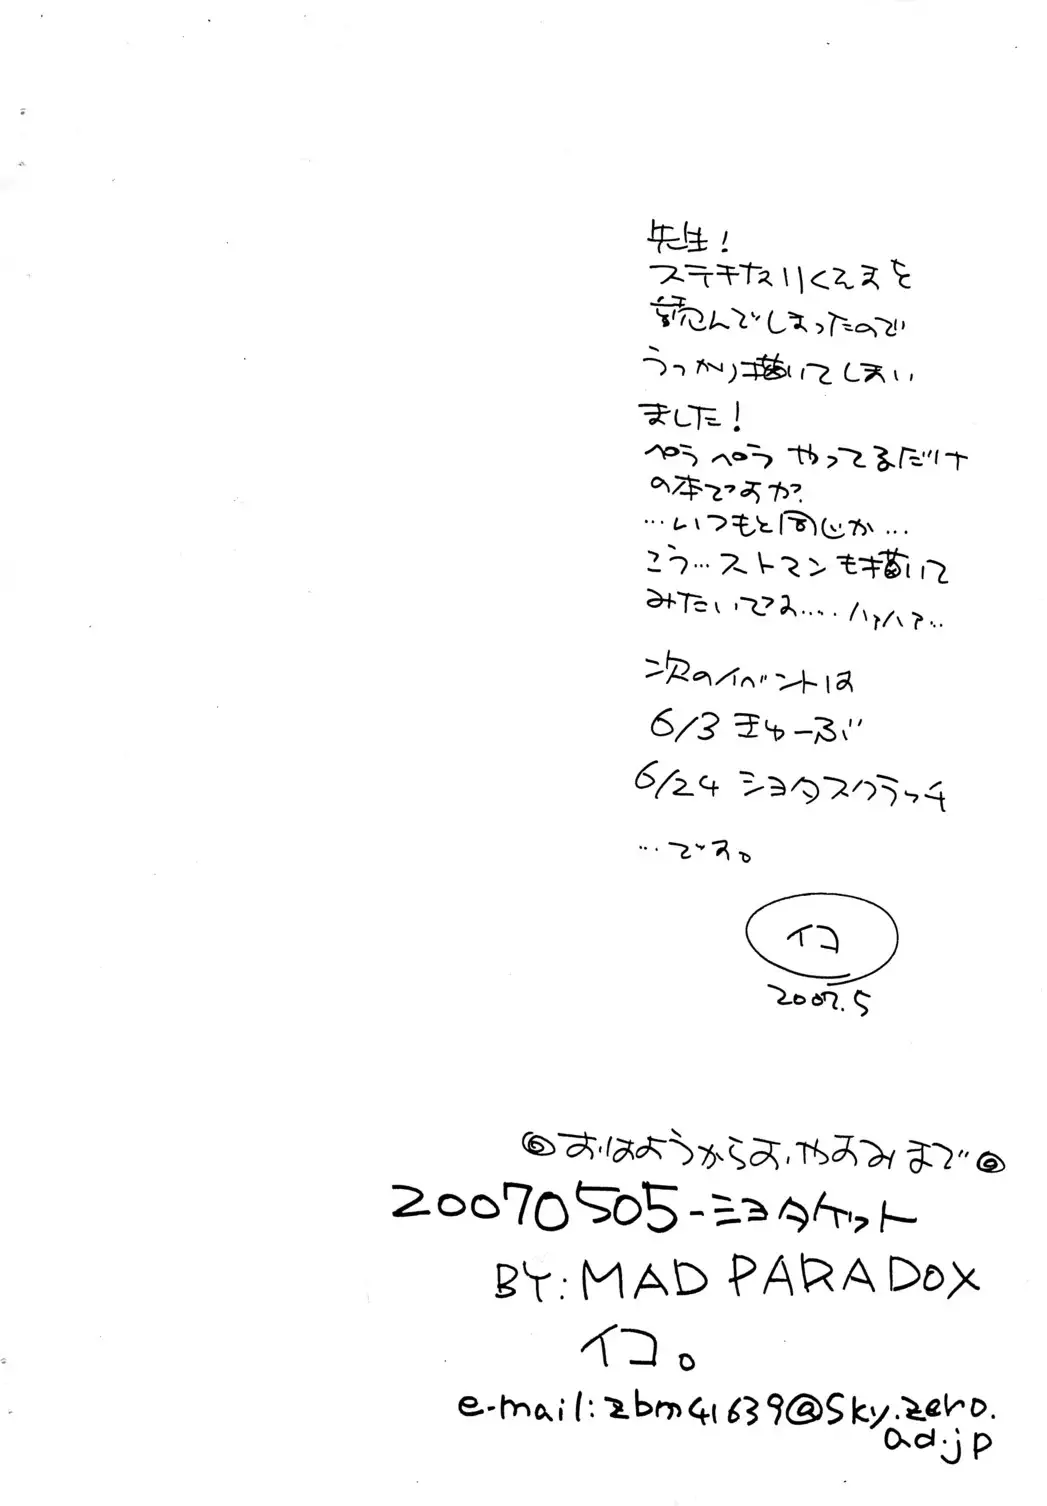 先生!
ステキなりくえすを
読んでしまったので
うっかり描いてしまい
ました!
ペラペラ やってるだけ
の本ですが?
…いつもと同じか…
こう…ストマンも描いて
みたいです…. ハァハァ…
次のイベントは
6/3 きゅーぶ
6/24 ショタスクラッチ
…です。
イコ
2007.5
◎おはようからおやすみまで◎
20070505-ショタケット
BY: MAD PARADOX
イコ。
e-mail: zbm41639@sky.zero.
ad.jp